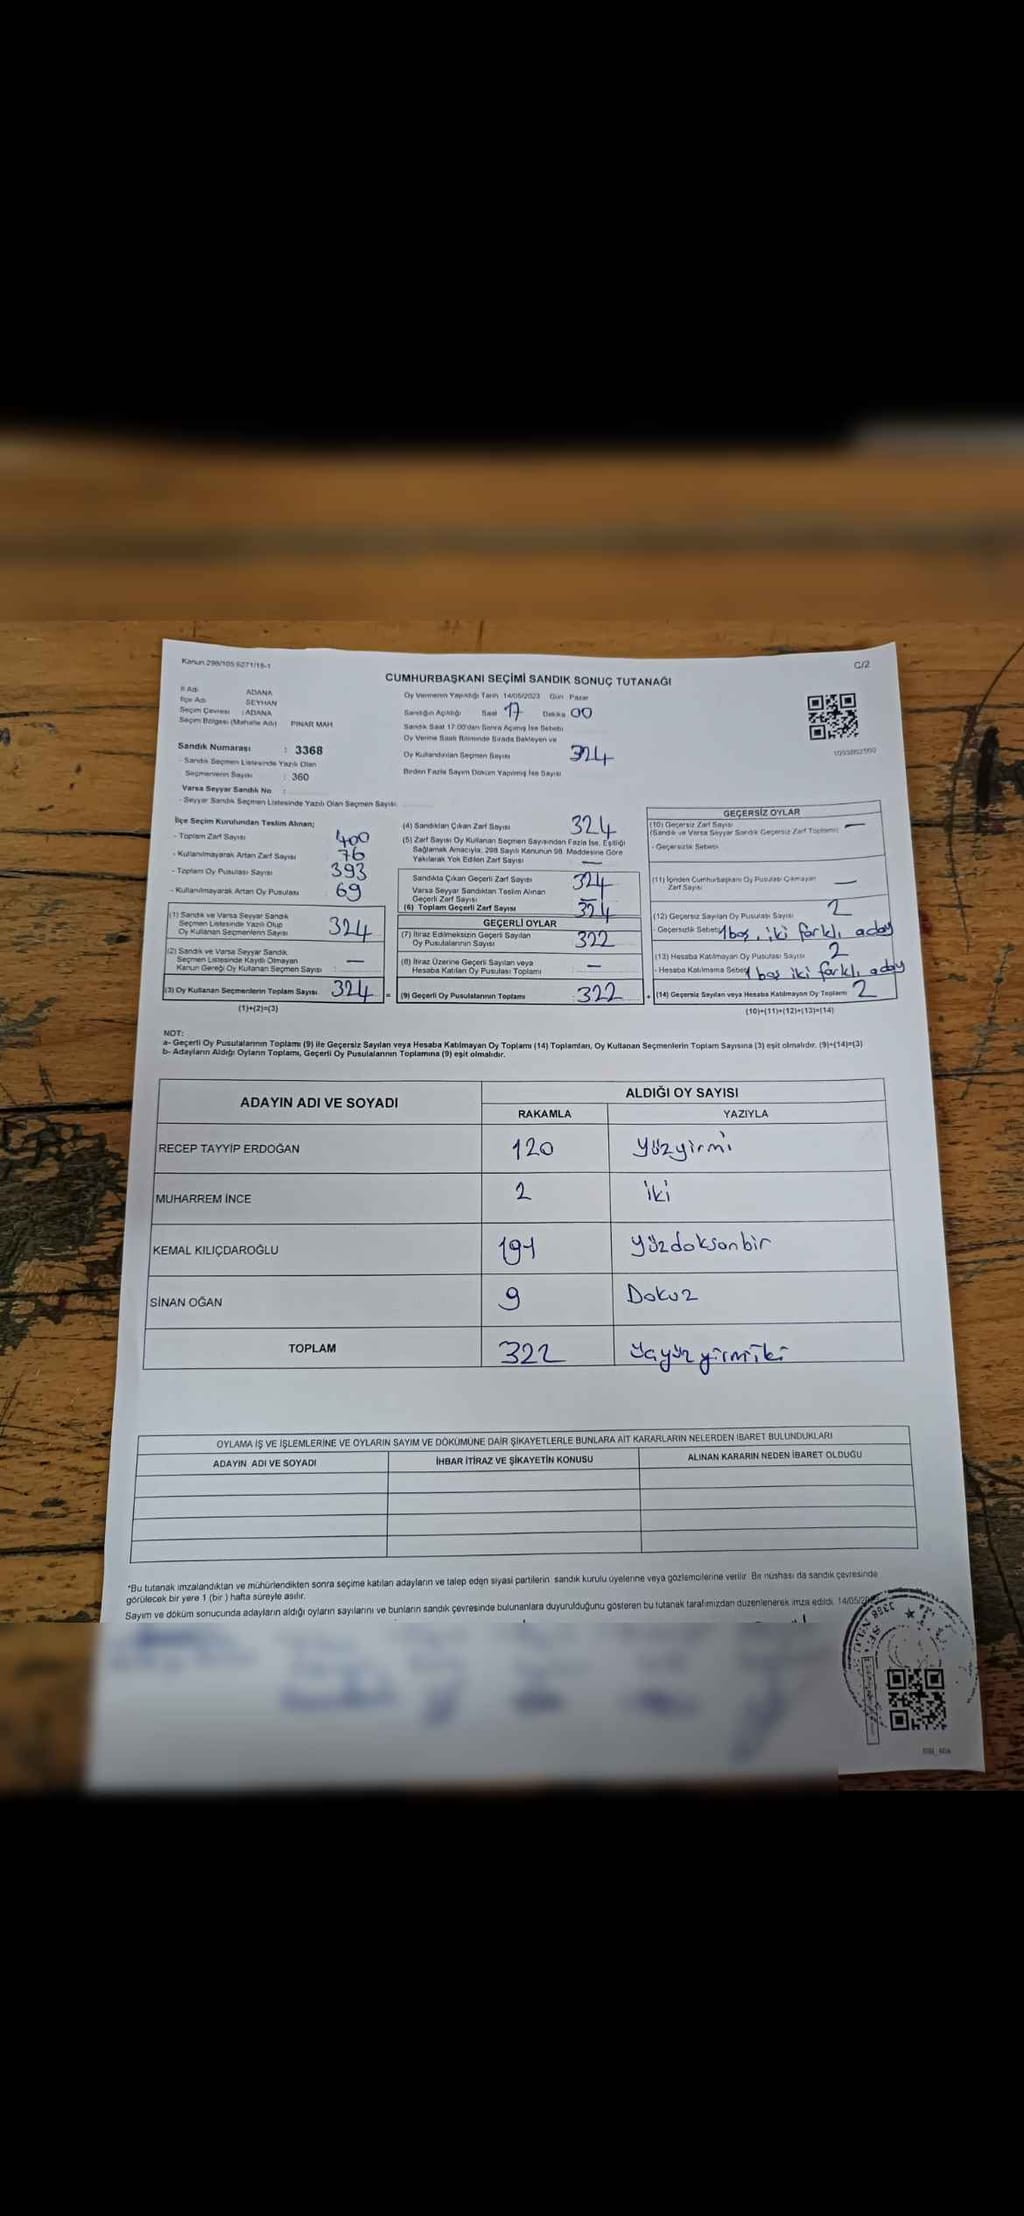 Kanun 298/105 6271/18-1
C/2
CUMHURBAŞKANI SEÇİMİ SANDIK SONUÇ TUTANAĞI
İl Adı ADANA
İlçe Adı SEYHAN
Seçim Çevresi : ADANA
Seçim Bölgesi (Mahalle Adı) PINAR MAH.
Sandık Numarası : 3368
- Sandık Seçmen Listesinde Yazılı Olan
Seçmenlerin Sayısı : 360
Varsa Seyyar Sandık No :
- Seyyar Sandık Seçmen Listesinde Yazılı Olan Seçmen Sayısı:
Oy Vermenin Yapıldığı Tarih 14/05/2023 Gün Pazar
Sandığın Açıldığı Saat 17 Dakika 00
Sandık Saat 17:00'dan Sonra Açılmış İse Sebebi
Oy Verme Saati Bitiminde Sırada Bekleyen ve
Oy Kullandırılan Seçmen Sayısı 324
Birden Fazla Sayım Döküm Yapılmış İse Sayısı
İlçe Seçim Kurulundan Teslim Alınan;
- Toplam Zarf Sayısı 400
- Kullanılmayarak Artan Zarf Sayısı 76
- Toplam Oy Pusulası Sayısı 393
- Kullanılmayarak Artan Oy Pusulası 69
(1) Sandık ve Varsa Seyyar Sandık
Seçmen Listesinde Yazılı Olup
Oy Kullanan Seçmenlerin Sayısı 324
(2) Sandık ve Varsa Seyyar Sandık
Seçmen Listesinde Kayıtlı Olmayan
Kanun Gereği Oy Kullanan Seçmen Sayısı —
(3) Oy Kullanan Seçmenlerin Toplam Sayısı 324 =
(1)+(2)=(3)
(4) Sandıktan Çıkan Zarf Sayısı 324
(5) Zarf Sayısı Oy Kullanan Seçmen Sayısından Fazla İse, Eşitliği
Sağlamak Amacıyla, 298 Sayılı Kanunun 98. Maddesine Göre
Yakılarak Yok Edilen Zarf Sayısı —
Sandıkta Çıkan Geçerli Zarf Sayısı 324
Varsa Seyyar Sandıktan Teslim Alınan
Geçerli Zarf Sayısı —
(6) Toplam Geçerli Zarf Sayısı 324
GEÇERLİ OYLAR
(7) İtiraz Edilmeksizin Geçerli Sayılan
Oy Pusulalarının Sayısı 322
(8) İtiraz Üzerine Geçerli Sayılan veya
Hesaba Katılan Oy Pusulası Toplamı —
(9) Geçerli Oy Pusulalarının Toplamı 322 +
GEÇERSİZ OYLAR
(10) Geçersiz Zarf Sayısı —
(Sandık ve Varsa Seyyar Sandık Geçersiz Zarf Toplamı)
- Geçersizlik Sebebi
(11) İçinden Cumhurbaşkanı Oy Pusulası Çıkmayan —
Zarf Sayısı
(12) Geçersiz Sayılan Oy Pusulası Sayısı 2
- Geçersizlik Sebebi 1 boş, iki farklı aday
(13) Hesaba Katılmayan Oy Pusulası Sayısı 2
- Hesaba Katılmama Sebebi 1 boş iki farklı aday
(14) Geçersiz Sayılan veya Hesaba Katılmayan Oy Toplamı 2
(10)+(11)+(12)+(13)=(14)
NOT:
a- Geçerli Oy Pusulalarının Toplamı (9) ile Geçersiz Sayılan veya Hesaba Katılmayan Oy Toplamı (14) Toplamları, Oy Kullanan Seçmenlerin Toplam Sayısına (3) eşit olmalıdır. (9)+(14)=(3)
b- Adayların Aldığı Oyların Toplamı, Geçerli Oy Pusulalarının Toplamına (9) eşit olmalıdır.
ADAYIN ADI VE SOYADI ALDIĞI OY SAYISI
RAKAMLA YAZIYLA
RECEP TAYYİP ERDOĞAN 120 Yüzyirmi
MUHARREM İNCE 2 iki
KEMAL KILIÇDAROĞLU 191 Yüzdoksanbir
SİNAN OĞAN 9 Dokuz
TOPLAM 322
OYLAMA İŞ VE İŞLEMLERİNE VE OYLARIN SAYIM VE DÖKÜMÜNE DAİR ŞİKAYETLERLE BUNLARA AİT KARARLARIN NELERDEN İBARET BULUNDUKLARI
ADAYIN ADI VE SOYADI İHBAR İTİRAZ VE ŞİKAYETİN KONUSU ALINAN KARARIN NEDEN İBARET OLDUĞU
*Bu tutanak imzalandıktan ve mühürlendikten sonra seçime katılan adayların ve talep eden siyasi partilerin sandık kurulu üyelerine veya gözlemcilerine verilir. Bir nüshası da sandık çevresinde
görülecek bir yere 1 (bir) hafta süreyle asılır.
Sayım ve döküm sonucunda adayların aldığı oyların sayılarını ve bunların sandık çevresinde bulunanlara duyurulduğunu gösteren bu tutanak tarafımızdan düzenlenerek imza edildi. 14/05/